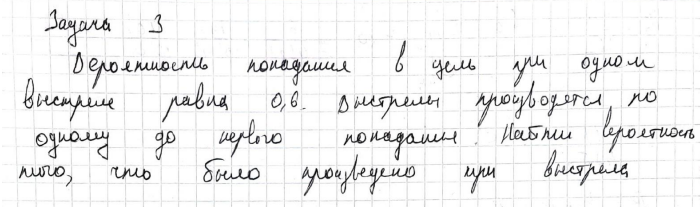 Задача 3
Вероятность попадания в цель при одном
выстреле равна 0,6. Выстрелы производятся по
одному до первого попадания. Найти вероятность
того, что было произведено три выстрела